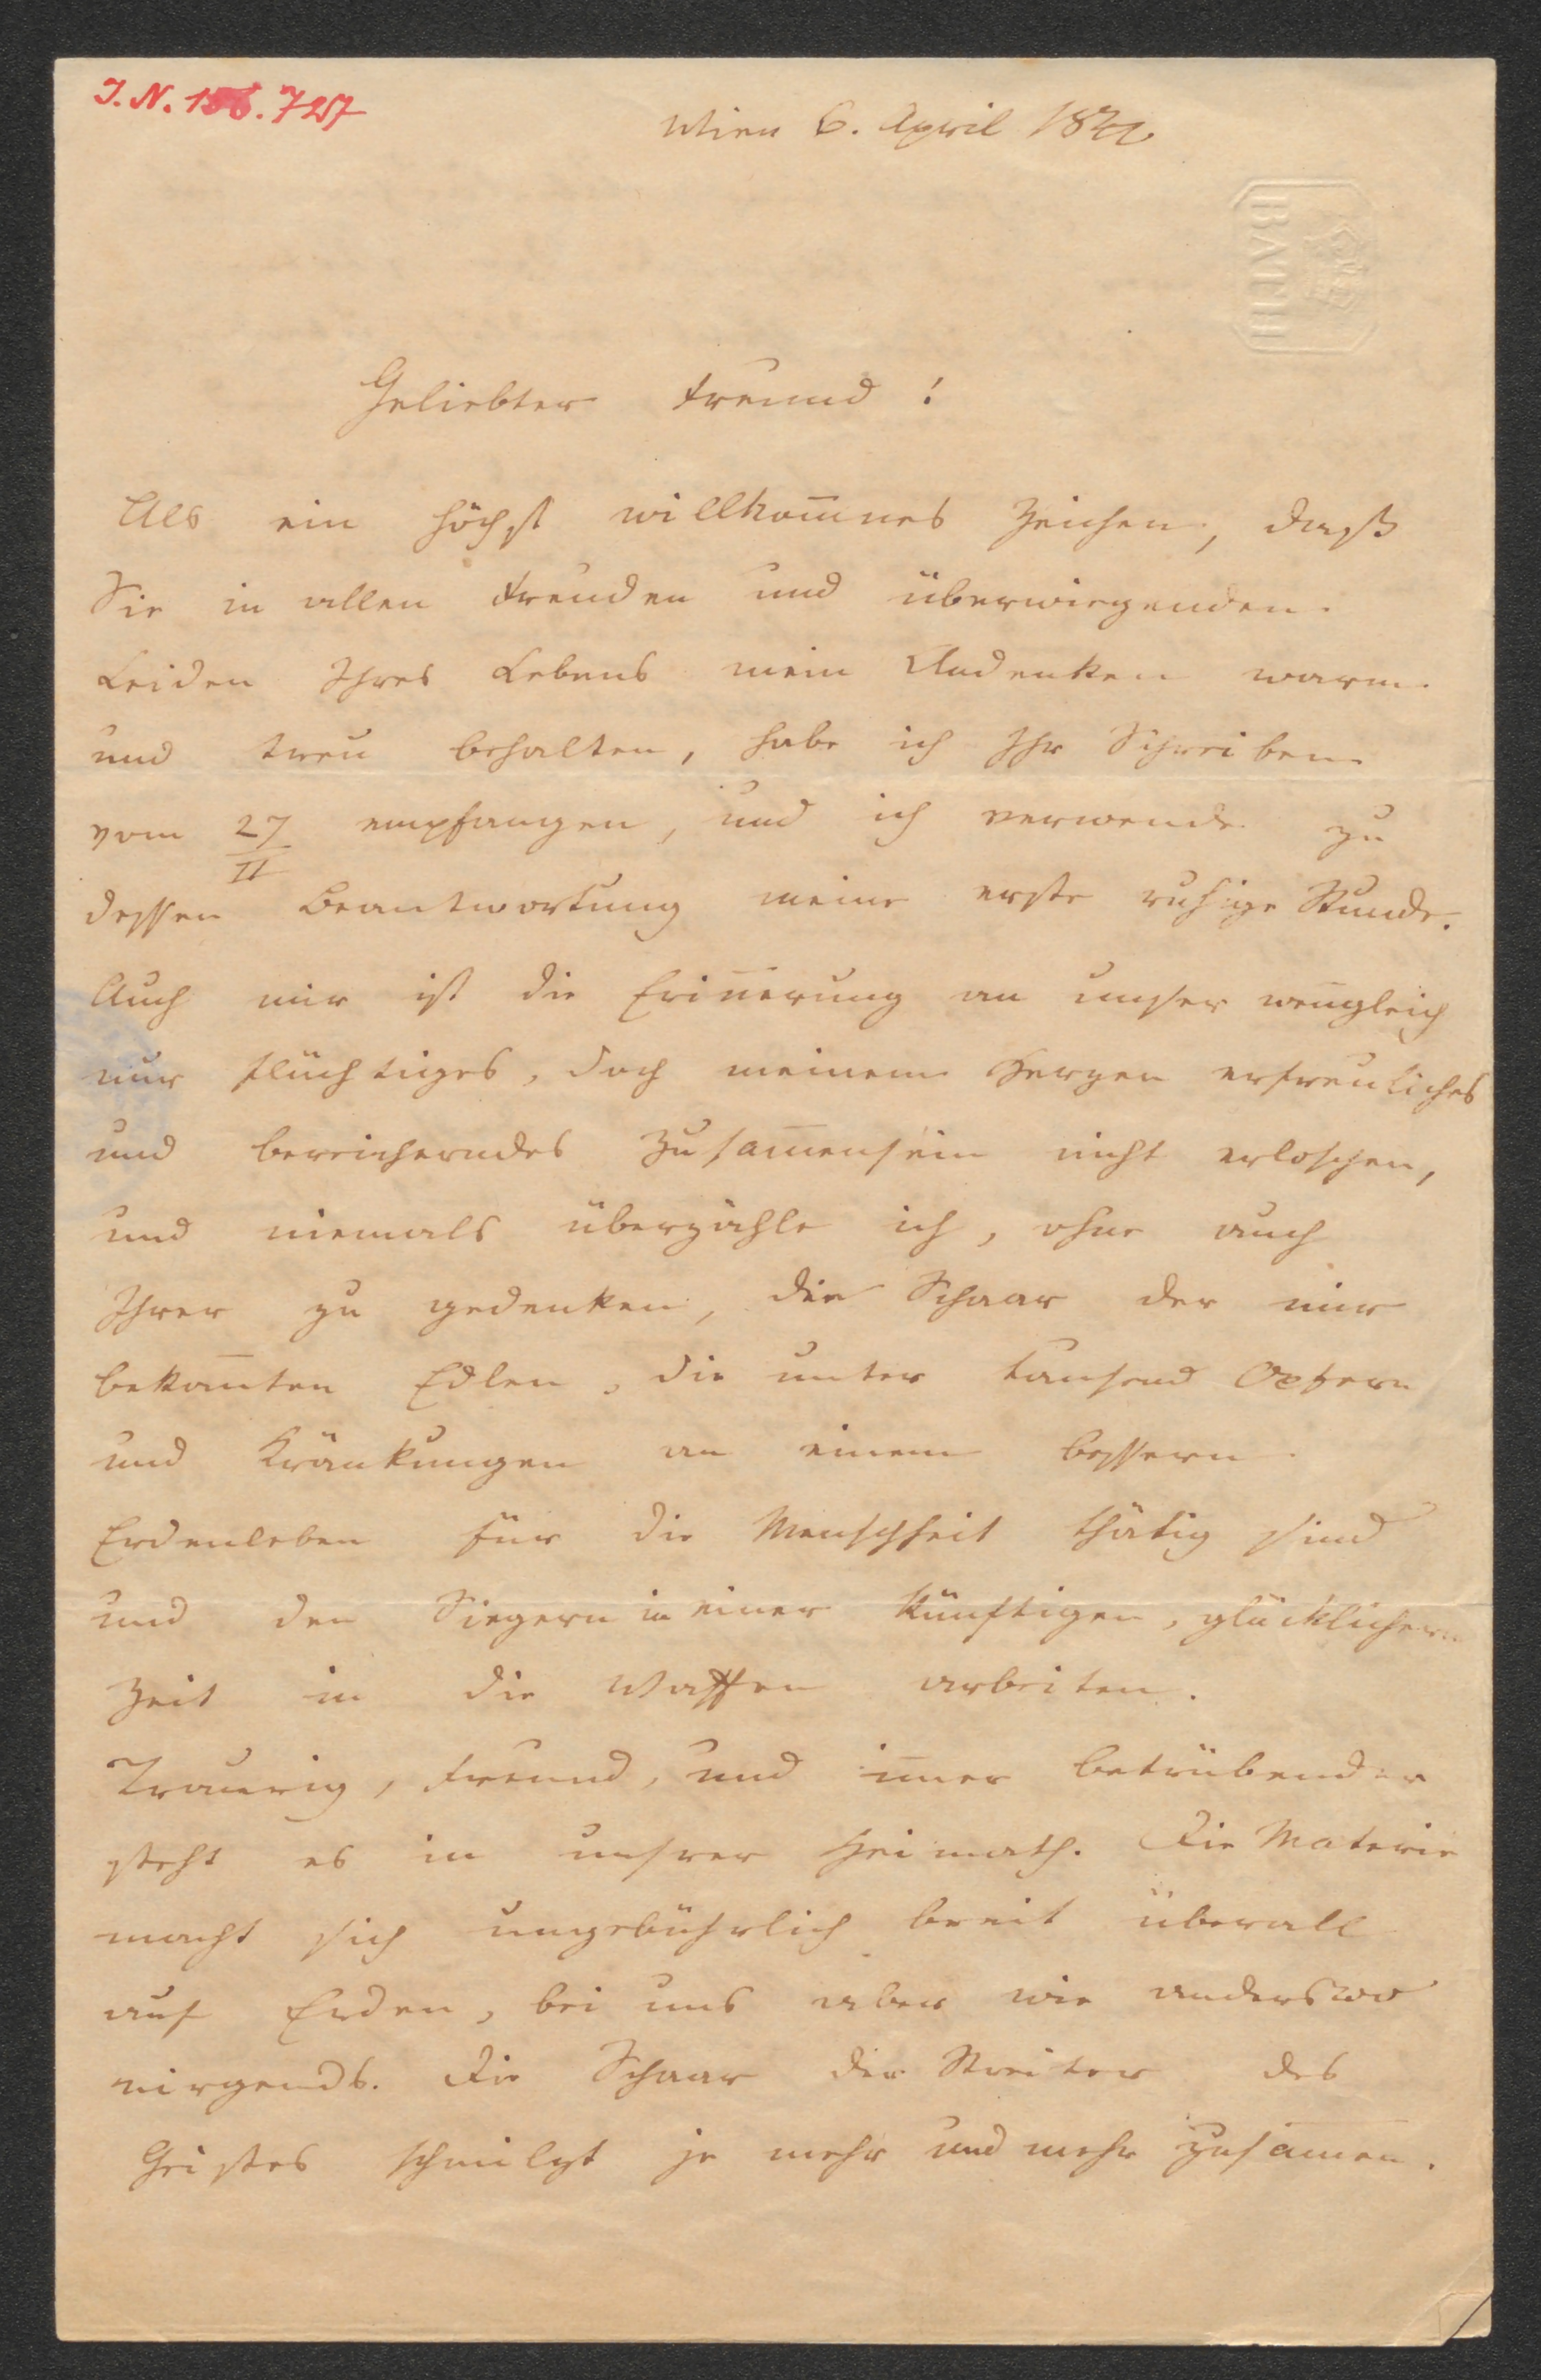 I.N. 156.727
Wien 6. April 184
BATH
Geliebter Freund!
Als ein höchst willkom̄nes Zeichen, daß
Sie in allen Freuden und überwiegenden
Leiden Ihres Lebens mein Andenken warm
und treu behalten, habe ich Ihr Schreiben
vom 27/II empfangen, und ich verwende zu
dessen Beantwortung meine erste ruhige Stunde.
Auch mir ist die Erin̄erung an unser wen̄gleich
nur flüchtiges, doch meinem Herzen erfreuliches
und bereicherndes Zusam̄ensein nicht erloschen,
und niemals überzähle ich, ohne auch
Ihrer zu gedenken, die Schaar der mir
bekan̄ten Edlen, die unter tausend Opfern
und Kränkungen an einem bessern
Erdenleben für die Menschheit thätig sind
und den Siegern in einer künftigen, glücklichern
Zeit in die Waffen arbeiten.
Traurig, Freund, und im̄er betrübender
steht es in unsrer Heimath. Die Materie
macht sich ungebührlich breit überall
auf Erden, bei uns aber wie anderswo
nirgends. Die Schaar der Streiter des
Geistes schmilzt je mehr und mehr zusam̄en.